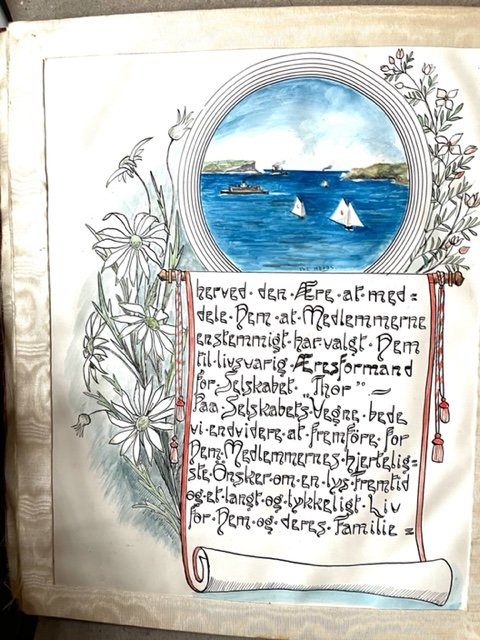 THE HEADS.
herved · den · Ære · at · med=
dele · Dem · at · Medlemmerne
enstemmigt · har · valgt · Dem
til · livsvarig · Æresformand
for · Selskabet · "Thor" —
Paa · Selskabets · Vegne · bede
vi · endvidere · at · fremföre · for
Dem · Medlemmernes · hjertelig=
ste · Önsker · om · en · lys · fremtid
og · et · langt · og · lykkeligt · Liv
for · Dem · og · deres · Familie =